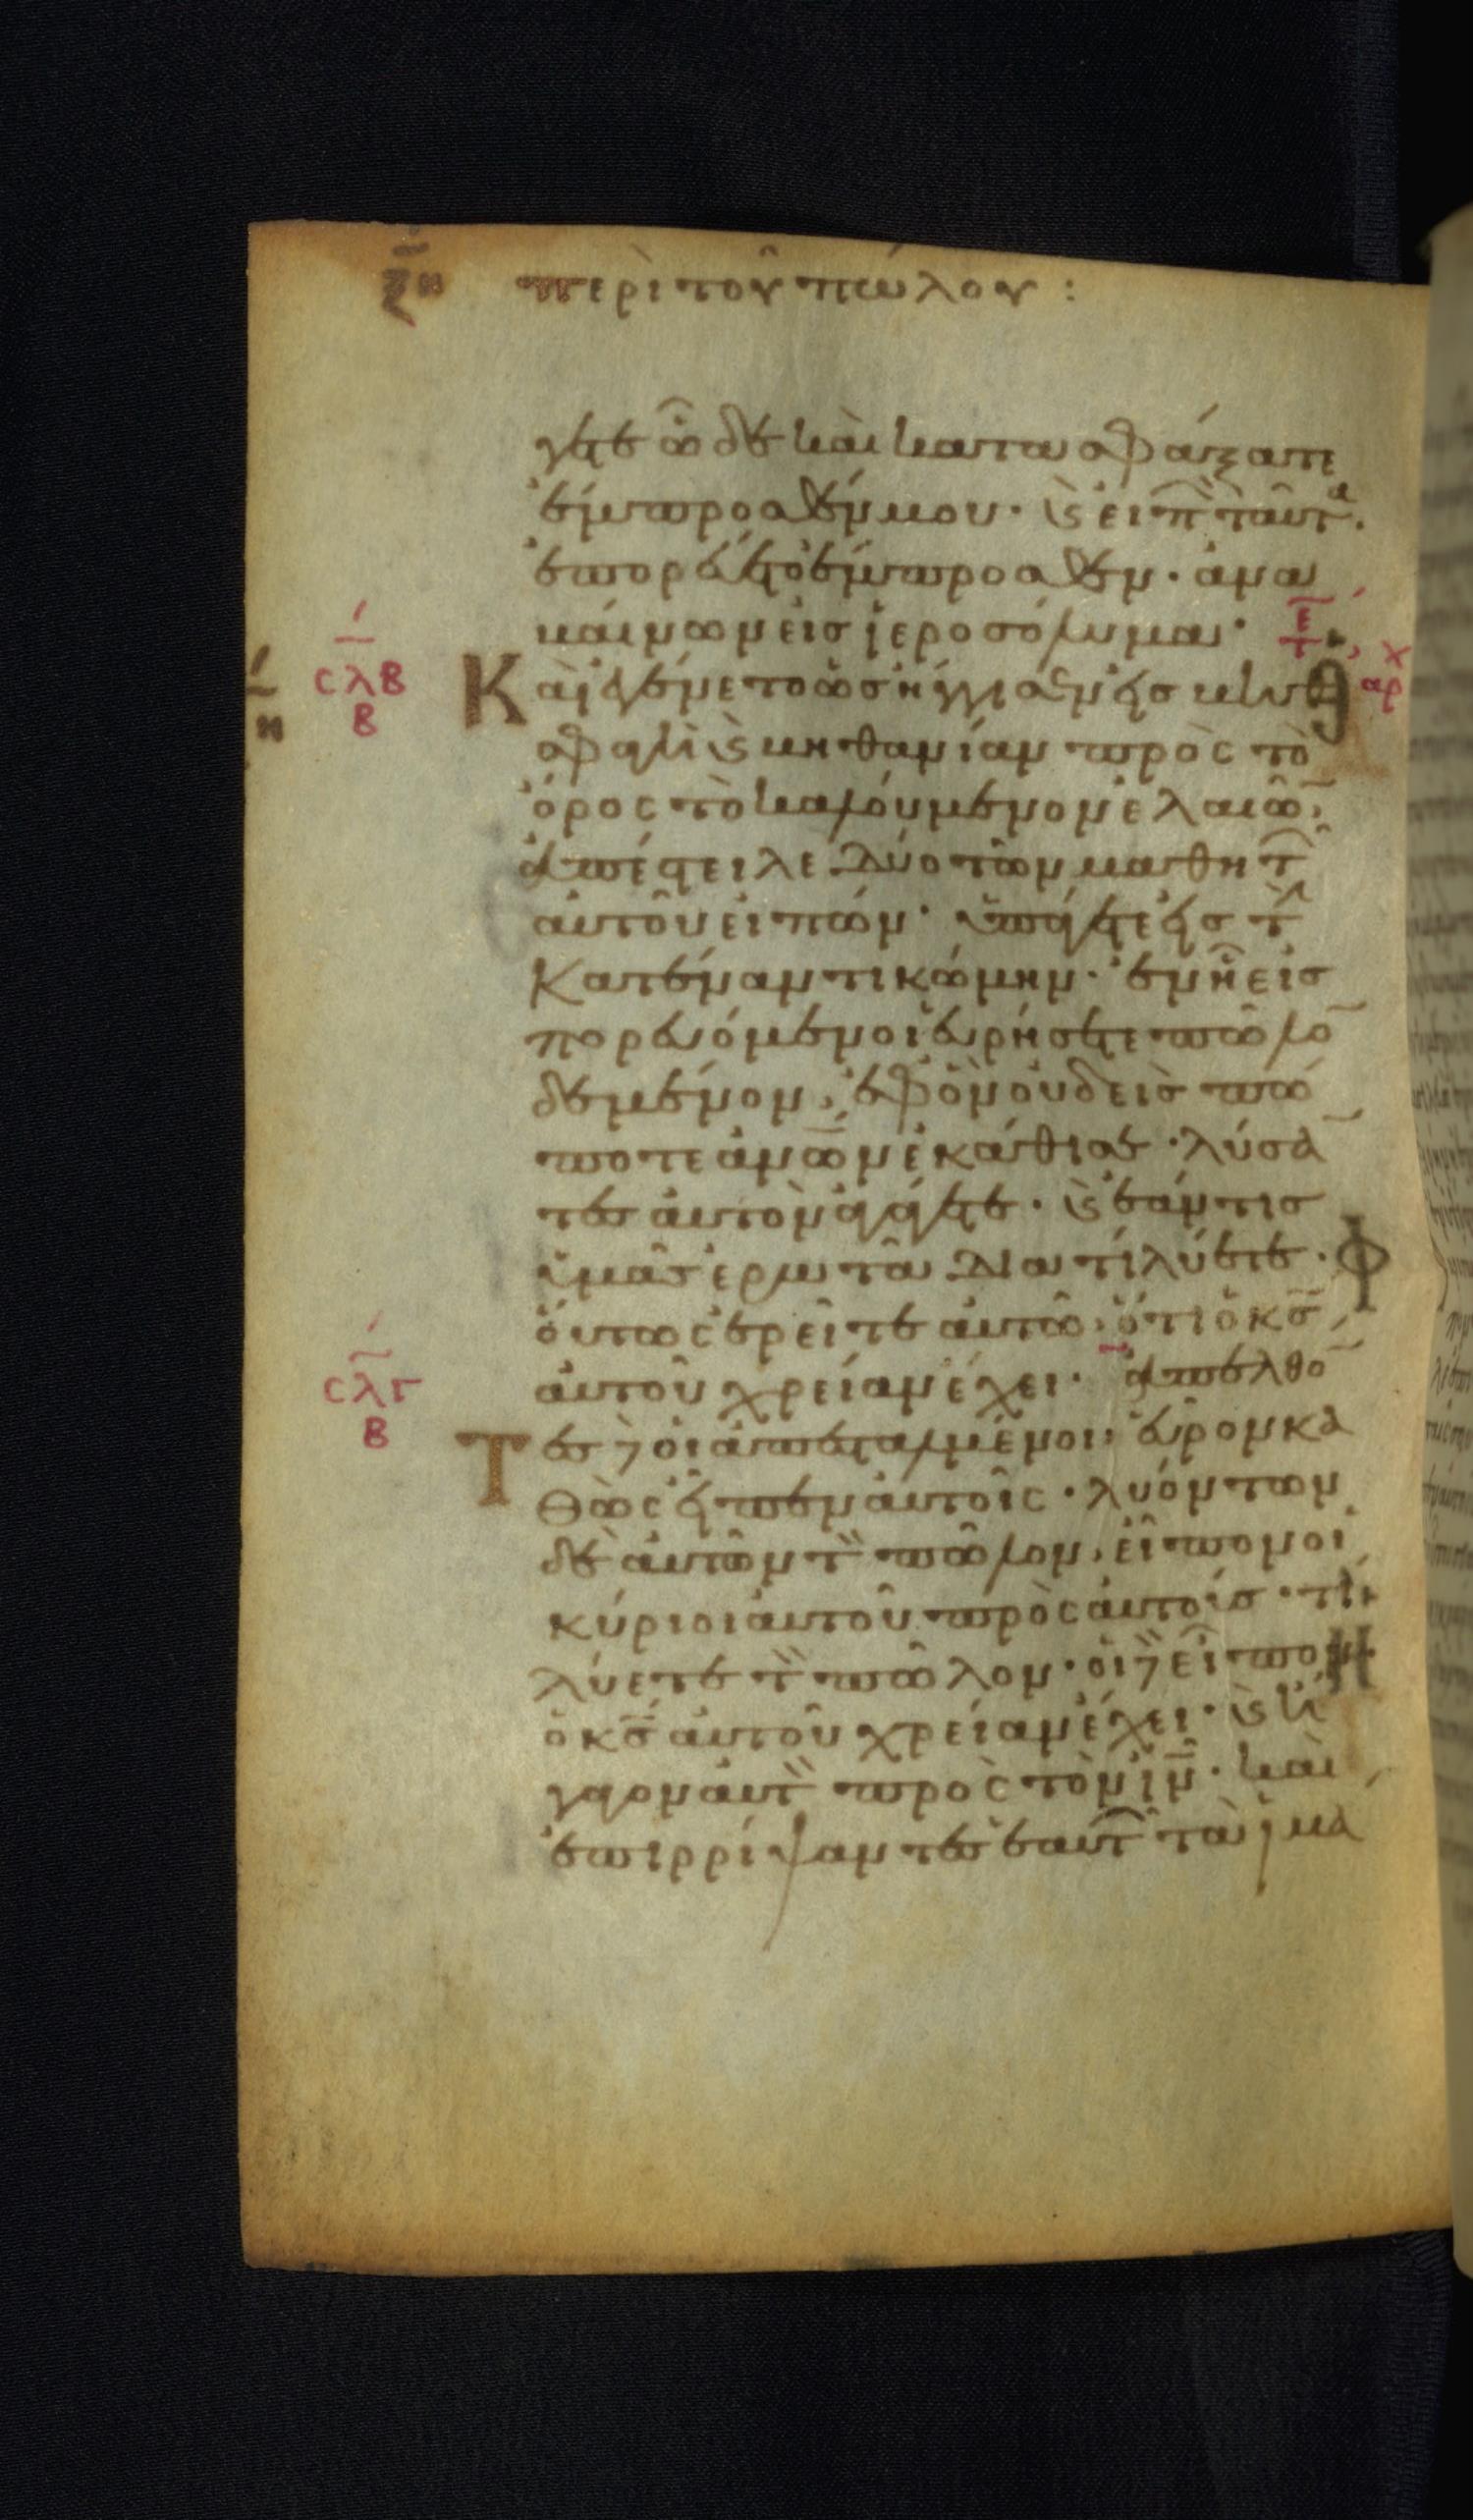 ξη περὶ τοῦ πώλου :
γετε ὧδε καὶ κατασφάξατε
ἔμπροσθέν μου· ϗ εἰπ̅ ταῦτα·
ἐπορεύετο ἔμπροσθεν· ἀνα
βαίνων εἰς ἱεροσόλυμα·
η ϲλβ β Καὶ ἐγένετο ὡς ἤγγισεν εἰς βηθ
σφαγὴ ϗ βηθανίαν πρὸς τὸ
ὄρος τὸ καλούμενον ἐλαιῶ̅·
ἀπέστειλε δύο τῶν μαθητ̅
αὐτοῦ εἰπών· ὑπάγετε εἰς τ̅
κατέναντι κώμην· ἐν ῆ εἰσ
πορευόμενοι εὑρήσετε πῶλο̅
δεμένον, ἐφ ὃν οὐδεὶς πώ
ποτε ἀνω̅ν ἐκάθισε· λύσα̅
τες αὐτὸν ἀγάγετε· ϗ ἐάν τις
ὑμᾶς ἐρωτᾶ διατί λύετε·
οὕτως ἐρεῖτε αὐτῶ· ὅτι ὁ κς̅
ϲλγ β αὐτοῦ χρείαν ἔχει· ἀπελθό̅
Τες δὲ οἱ ἀπεσταλμένοι· εὗρον κα
θὼς εἶπεν αὐτοῖς· λυόντων
δὲ αὐτῶν τὸν πῶλον, εἶπον οἱ
κύριοι αὐτοῦ πρὸς αὐτούς· τί
λύετε τὸν πῶλον· οἱ δὲ εἶπον·
ὁ κς̅ αὐτοῦ χρείαν ἔχει· ϗ ἤ
γαγον αὐτὸν πρὸς τὸν ιν̅· καὶ
ἐπιρρίψαντες ἑαυτ̅ τὰ ἱμά